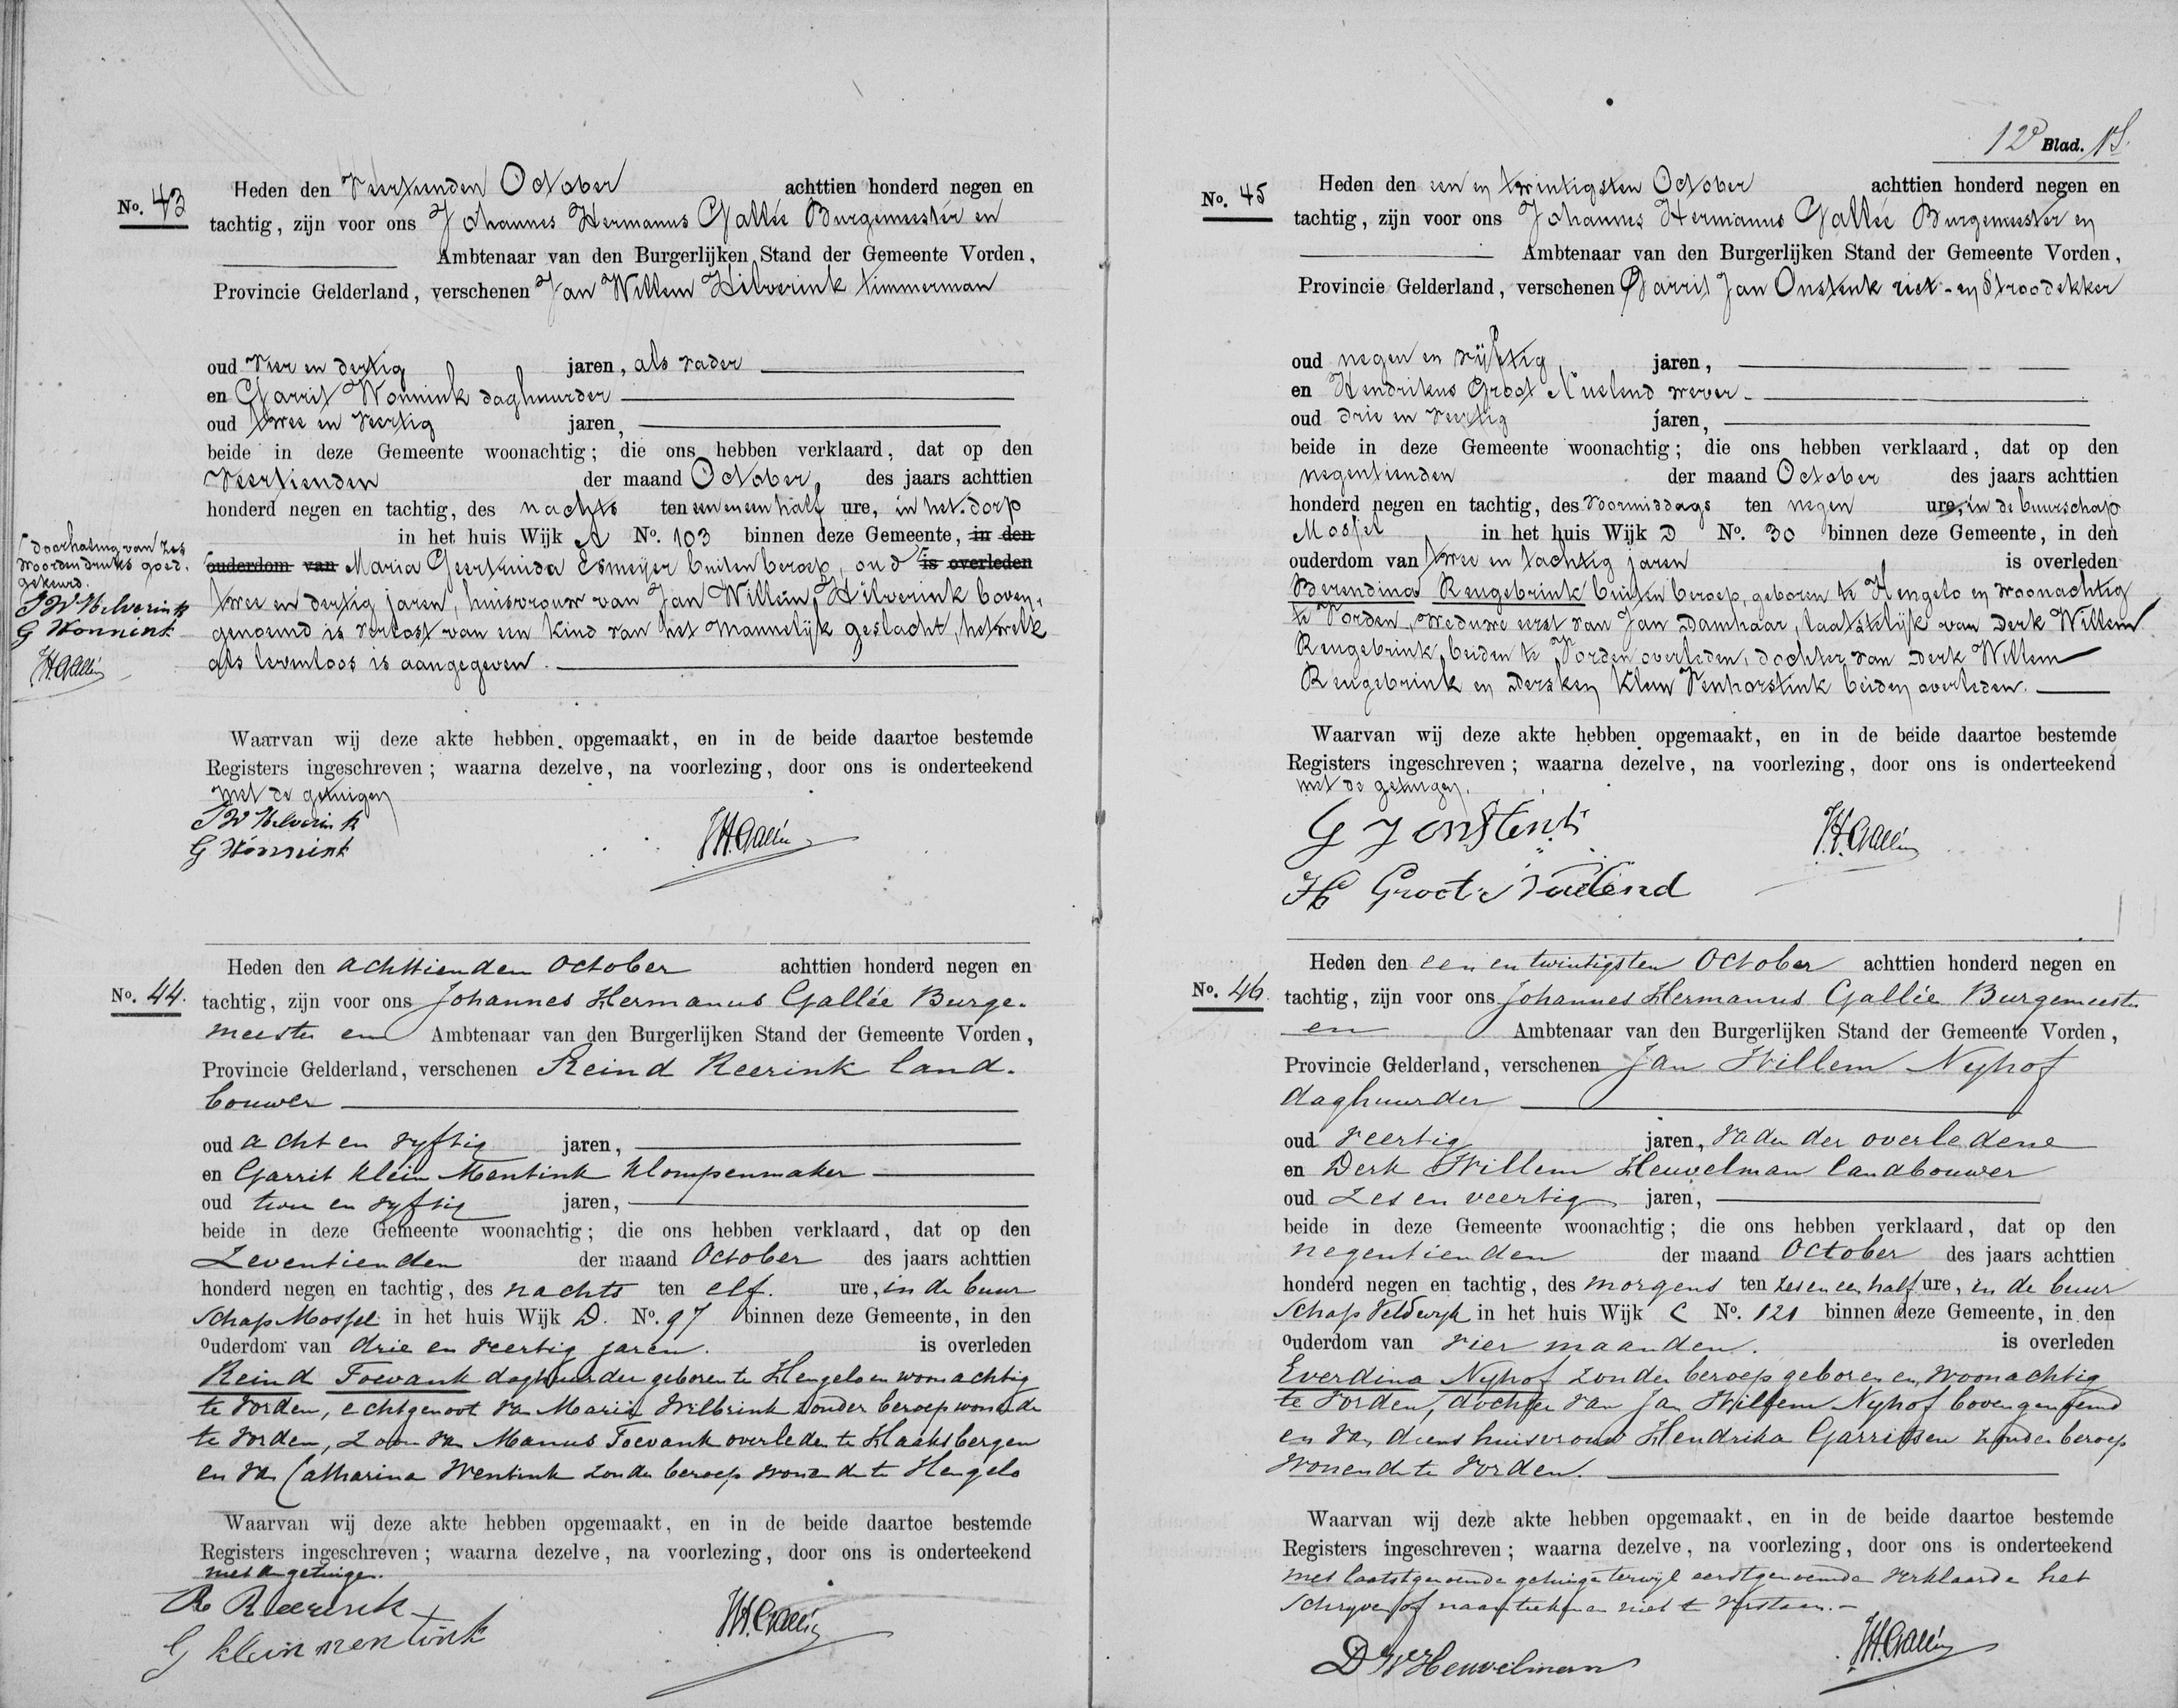 No. 43
Heden den Veertienden October achttien honderd negen en
tachtig, zijn voor ons Johannes Hermanus Gallée Burgemeester en
Ambtenaar van den Burgerlijken Stand der Gemeente Vorden,
Provincie Gelderland, verschenen Jan Willem Hilverink timmerman
oud vier en dertig jaren, als vader
en Garrit Wonnink daghuurder
oud twee en veertig jaren,
beide in deze Gemeente woonachtig; die ons hebben verklaard, dat op den
Veertienden der maand October, des jaars achttien
honderd negen en tachtig, des nachts ten een en een half ure, in het dorp
in het huis Wijk A No. 103 binnen deze Gemeente, in den
ouderdom van Maria Geertruida Esmeijer buiten beroep, oud is overleden
twee en dertig jaren, huisvrouw van Jan Willem Hilverink boven-
genoemd is verlost van een kind van het mannelijk geslacht, hetwelk
als levenloos is aangegeven.
doorhaling van zes
woorden druks goed-
gekeurd.
JW Hilverink
G Wonnink
JHGallée
Waarvan wij deze akte hebben opgemaakt, en in de beide daartoe bestemde
Registers ingeschreven; waarna dezelve, na voorlezing, door ons is onderteekend
met de getuigen
JW Hilverink
G Wonnink
JHGallée
No. 44.
Heden den achttienden October achttien honderd negen en
tachtig, zijn voor ons Johannes Hermanus Gallée Burge-
meester en Ambtenaar van den Burgerlijken Stand der Gemeente Vorden,
Provincie Gelderland, verschenen Reind Reerink land-
bouwer
oud acht en vyftig jaren,
en Garrit Klein Mentink klompenmaker
oud twee en vyftig jaren,
beide in deze Gemeente woonachtig; die ons hebben verklaard, dat op den
Zeventienden der maand October des jaars achttien
honderd negen en tachtig, des nachts ten elf. ure, in de buur
schap Mossel in het huis Wijk D. No. 97 binnen deze Gemeente, in den
ouderdom van drie en veertig jaren. is overleden
Reind Toevank daghuurder geboren te Hengelo en woonachtig
te Vorden, echtgenoot van Maria Wilbrink zonder beroep wonende
te Vorden, zoon van Manus Toevank overleden te Haaksbergen
en van Catharina Wentink zonder beroep wonende te Hengelo
Waarvan wij deze akte hebben opgemaakt, en in de beide daartoe bestemde
Registers ingeschreven; waarna dezelve, na voorlezing, door ons is onderteekend
met de getuigen.
R Reerink
G klein mentink
JHGallée
12e Blad.
No. 45
Heden den een en twintigsten October achttien honderd negen en
tachtig, zijn voor ons Johannes Hermanus Gallée Burgemeester en
Ambtenaar van den Burgerlijken Stand der Gemeente Vorden,
Provincie Gelderland, verschenen Garrit Jan Onstenk riet- en Stroodekker
oud negen en vijftig jaren,
en Hendrikus Groot Nuelend wever
oud drie en veertig jaren,
beide in deze Gemeente woonachtig; die ons hebben verklaard, dat op den
negentienden der maand October des jaars achttien
honderd negen en tachtig, des voormiddags ten negen ure, in de buurschap
Mossel in het huis Wijk D No. 30 binnen deze Gemeente, in den
ouderdom van twee en tachtig jaren is overleden
Berendina Rengebrink buiten beroep, geboren te Hengelo en woonachtig
te Vorden, weduwe eerst van Jan Damhaar, laatstelijk van Derk Willem
Rengebrink, beiden te Vorden overleden, dochter van Derk Willem
Rengebrink en Dersken Klein Venhorstink beiden overleden.
Waarvan wij deze akte hebben opgemaakt, en in de beide daartoe bestemde
Registers ingeschreven; waarna dezelve, na voorlezing, door ons is onderteekend
met de getuigen.
G J onstenk
H Groot Nuelend
JHGallée
No. 46.
Heden den een en twintigsten October achttien honderd negen en
tachtig, zijn voor ons Johannes Hermanus Gallée Burgemeester
en Ambtenaar van den Burgerlijken Stand der Gemeente Vorden,
Provincie Gelderland, verschenen Jan Willem Nyhof
daghuurder
oud veertig jaren, vader der overledene
en Derk Willem Heuvelman landbouwer
oud zes en veertig jaren,
beide in deze Gemeente woonachtig; die ons hebben verklaard, dat op den
negentienden der maand October des jaars achttien
honderd negen en tachtig, des morgens ten zes en een half ure, in de buur
schap Veldwyk in het huis Wijk C No. 121 binnen deze Gemeente, in den
ouderdom van vier maanden. is overleden
Everdina Nyhof zonder beroep geboren en woonachtig
te Vorden, dochter van Jan Willem Nyhof bovengenoemd
en van diens huisvrouw Hendrika Garritsen zonder beroep
wonende te Vorden.
Waarvan wij deze akte hebben opgemaakt, en in de beide daartoe bestemde
Registers ingeschreven; waarna dezelve, na voorlezing, door ons is onderteekend
met laatstgenoemde getuige terwijl eerstgenoemde verklaarde het
schryven of naamteekenen niet te verstaan.
DW Heuvelman
JHGallée